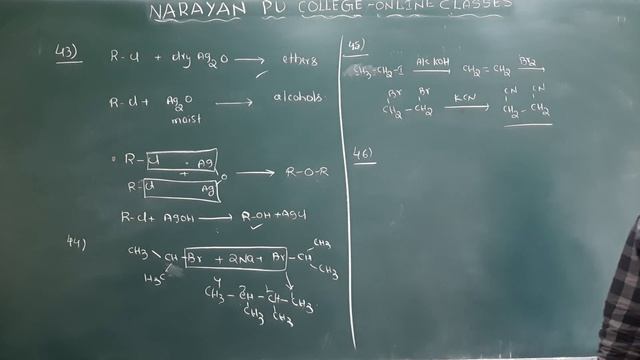 NARAYAN PU COLLEGE-ONLINE CLASSES
43)
R-Cl + dry Ag2O → ethers
R-Cl + Ag2O → alcohols
moist
R-Cl Ag
+ O → R-O-R
R-Cl Ag
R-Cl + AgOH → R-OH + AgCl
44)
CH3 CH3
CH-Br + 2Na + Br-CH
H3C CH3
4 3 2 1
CH3-CH-CH-CH3
CH3 CH3
45)
CH3-CH2-I Alc KOH → CH2=CH2 Br2 →
Br Br CN CN
CH2-CH2 KCN → CH2-CH2
46)